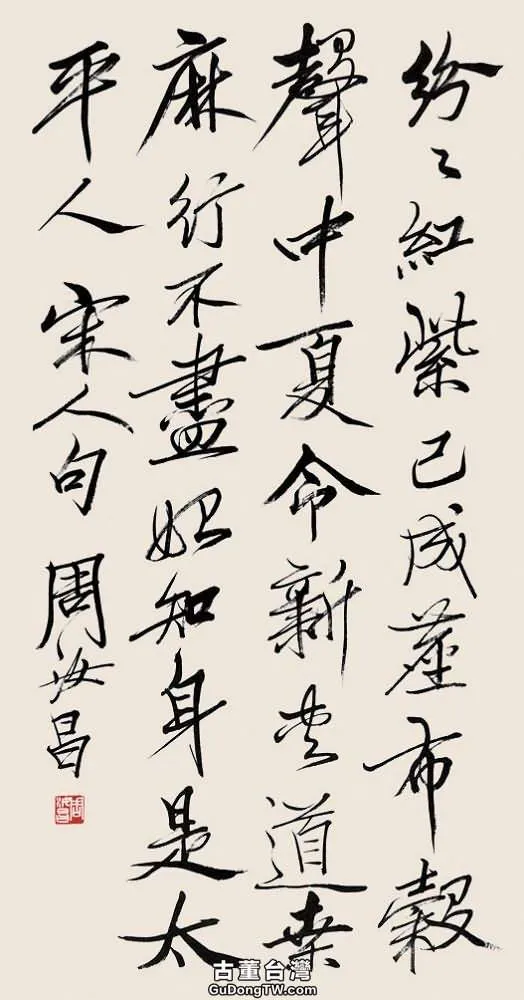 紛〻紅紫已成塵布穀
聲中夏令新夾道桑
麻行不盡始知身是太
平人 宋人句 周汝昌
周汝昌
古董台灣
GuDongTW.com